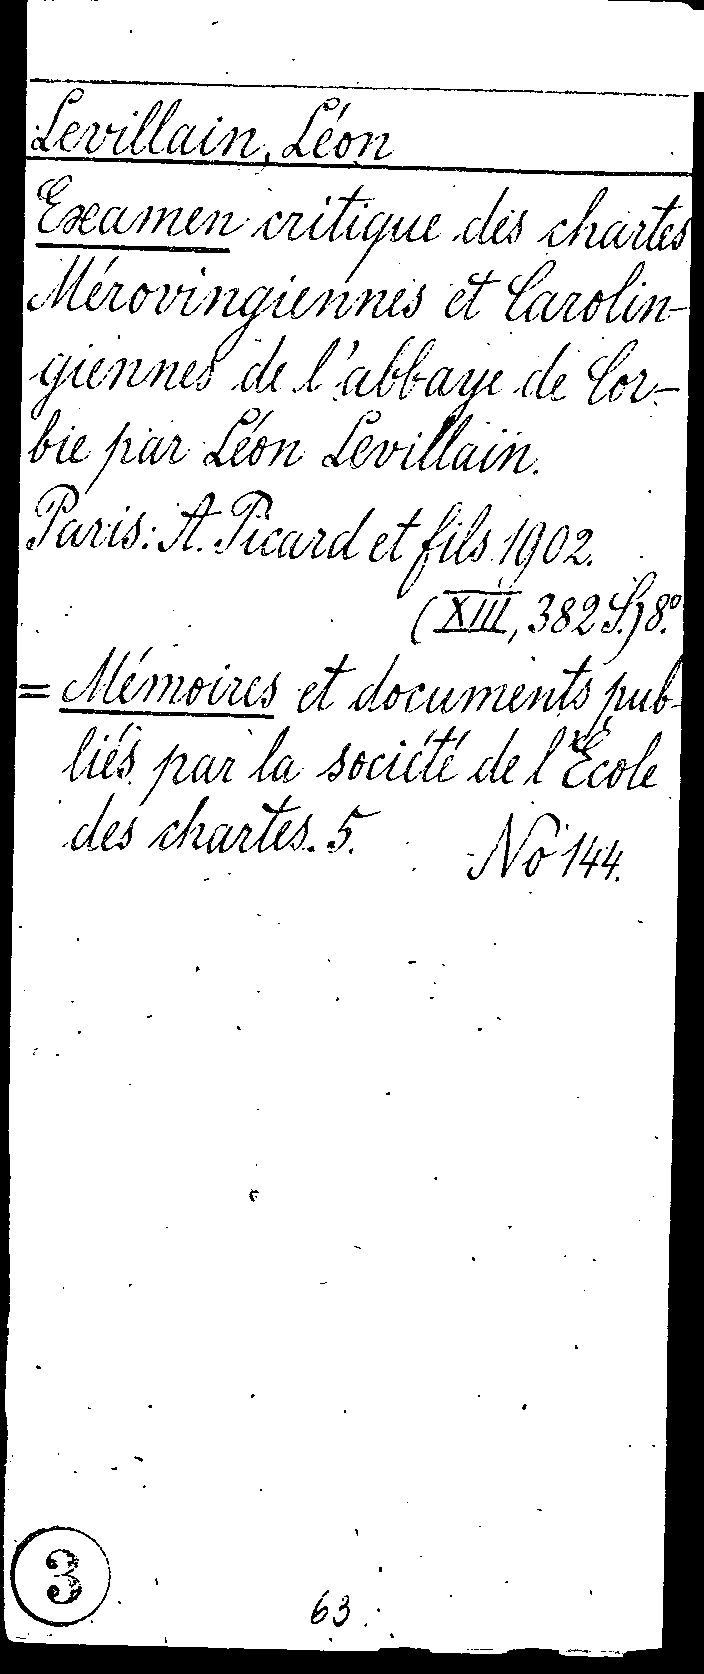 Levillain, Léon
Examen critique des chartes
Mérovingiennes et Carolin-
giennes de l'abbaye de Cor-
bie par Léon Levillain.
Paris: A. Picard et fils 1902.
(XIII, 382 S.) 8.°
= Mémoires et documents pub-
liés par la société de l'École
des chartes. 5. No 144.
3
63